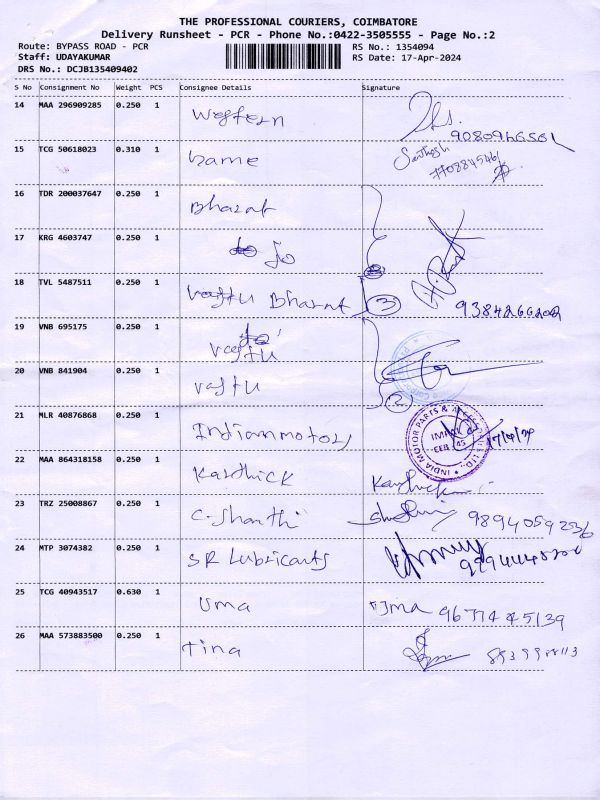 THE PROFESSIONAL COURIERS, COIMBATORE
Delivery Runsheet - PCR - Phone No.:0422-3505555 - Page No.:2
Route: BYPASS ROAD - PCR
RS No.: 1354094
Staff: UDAYAKUMAR
RS Date: 17-Apr-2024
DRS No.: DCJB135409402
S No Consignment No Weight PCS Consignee Details Signature
14 MAA 296909285 0.250 1 Western
9080946501
15 TCG 50618023 0.310 1 bame Santhosh
16 TDR 200037647 0.250 1 Bharat
17 KRG 4603747 0.250 1 Jo
18 TVL 5487511 0.250 1 Bharat 3
9384266202
19 VNB 695175 0.250 1 vastu
20 VNB 841904 0.250 1 vastu 2
21 MLR 40876868 0.250 1 Indianmotors
INDIA MOTOR PARTS &
22 MAA 864318158 0.250 1 Karthick Karthick
23 TRZ 25008867 0.250 1 C-Shanthi 9894059236
24 MTP 3074382 0.250 1 SR Lubricants
25 TCG 40943517 0.630 1 Uma Uma 9677445139
26 MAA 573883500 0.250 1 tina